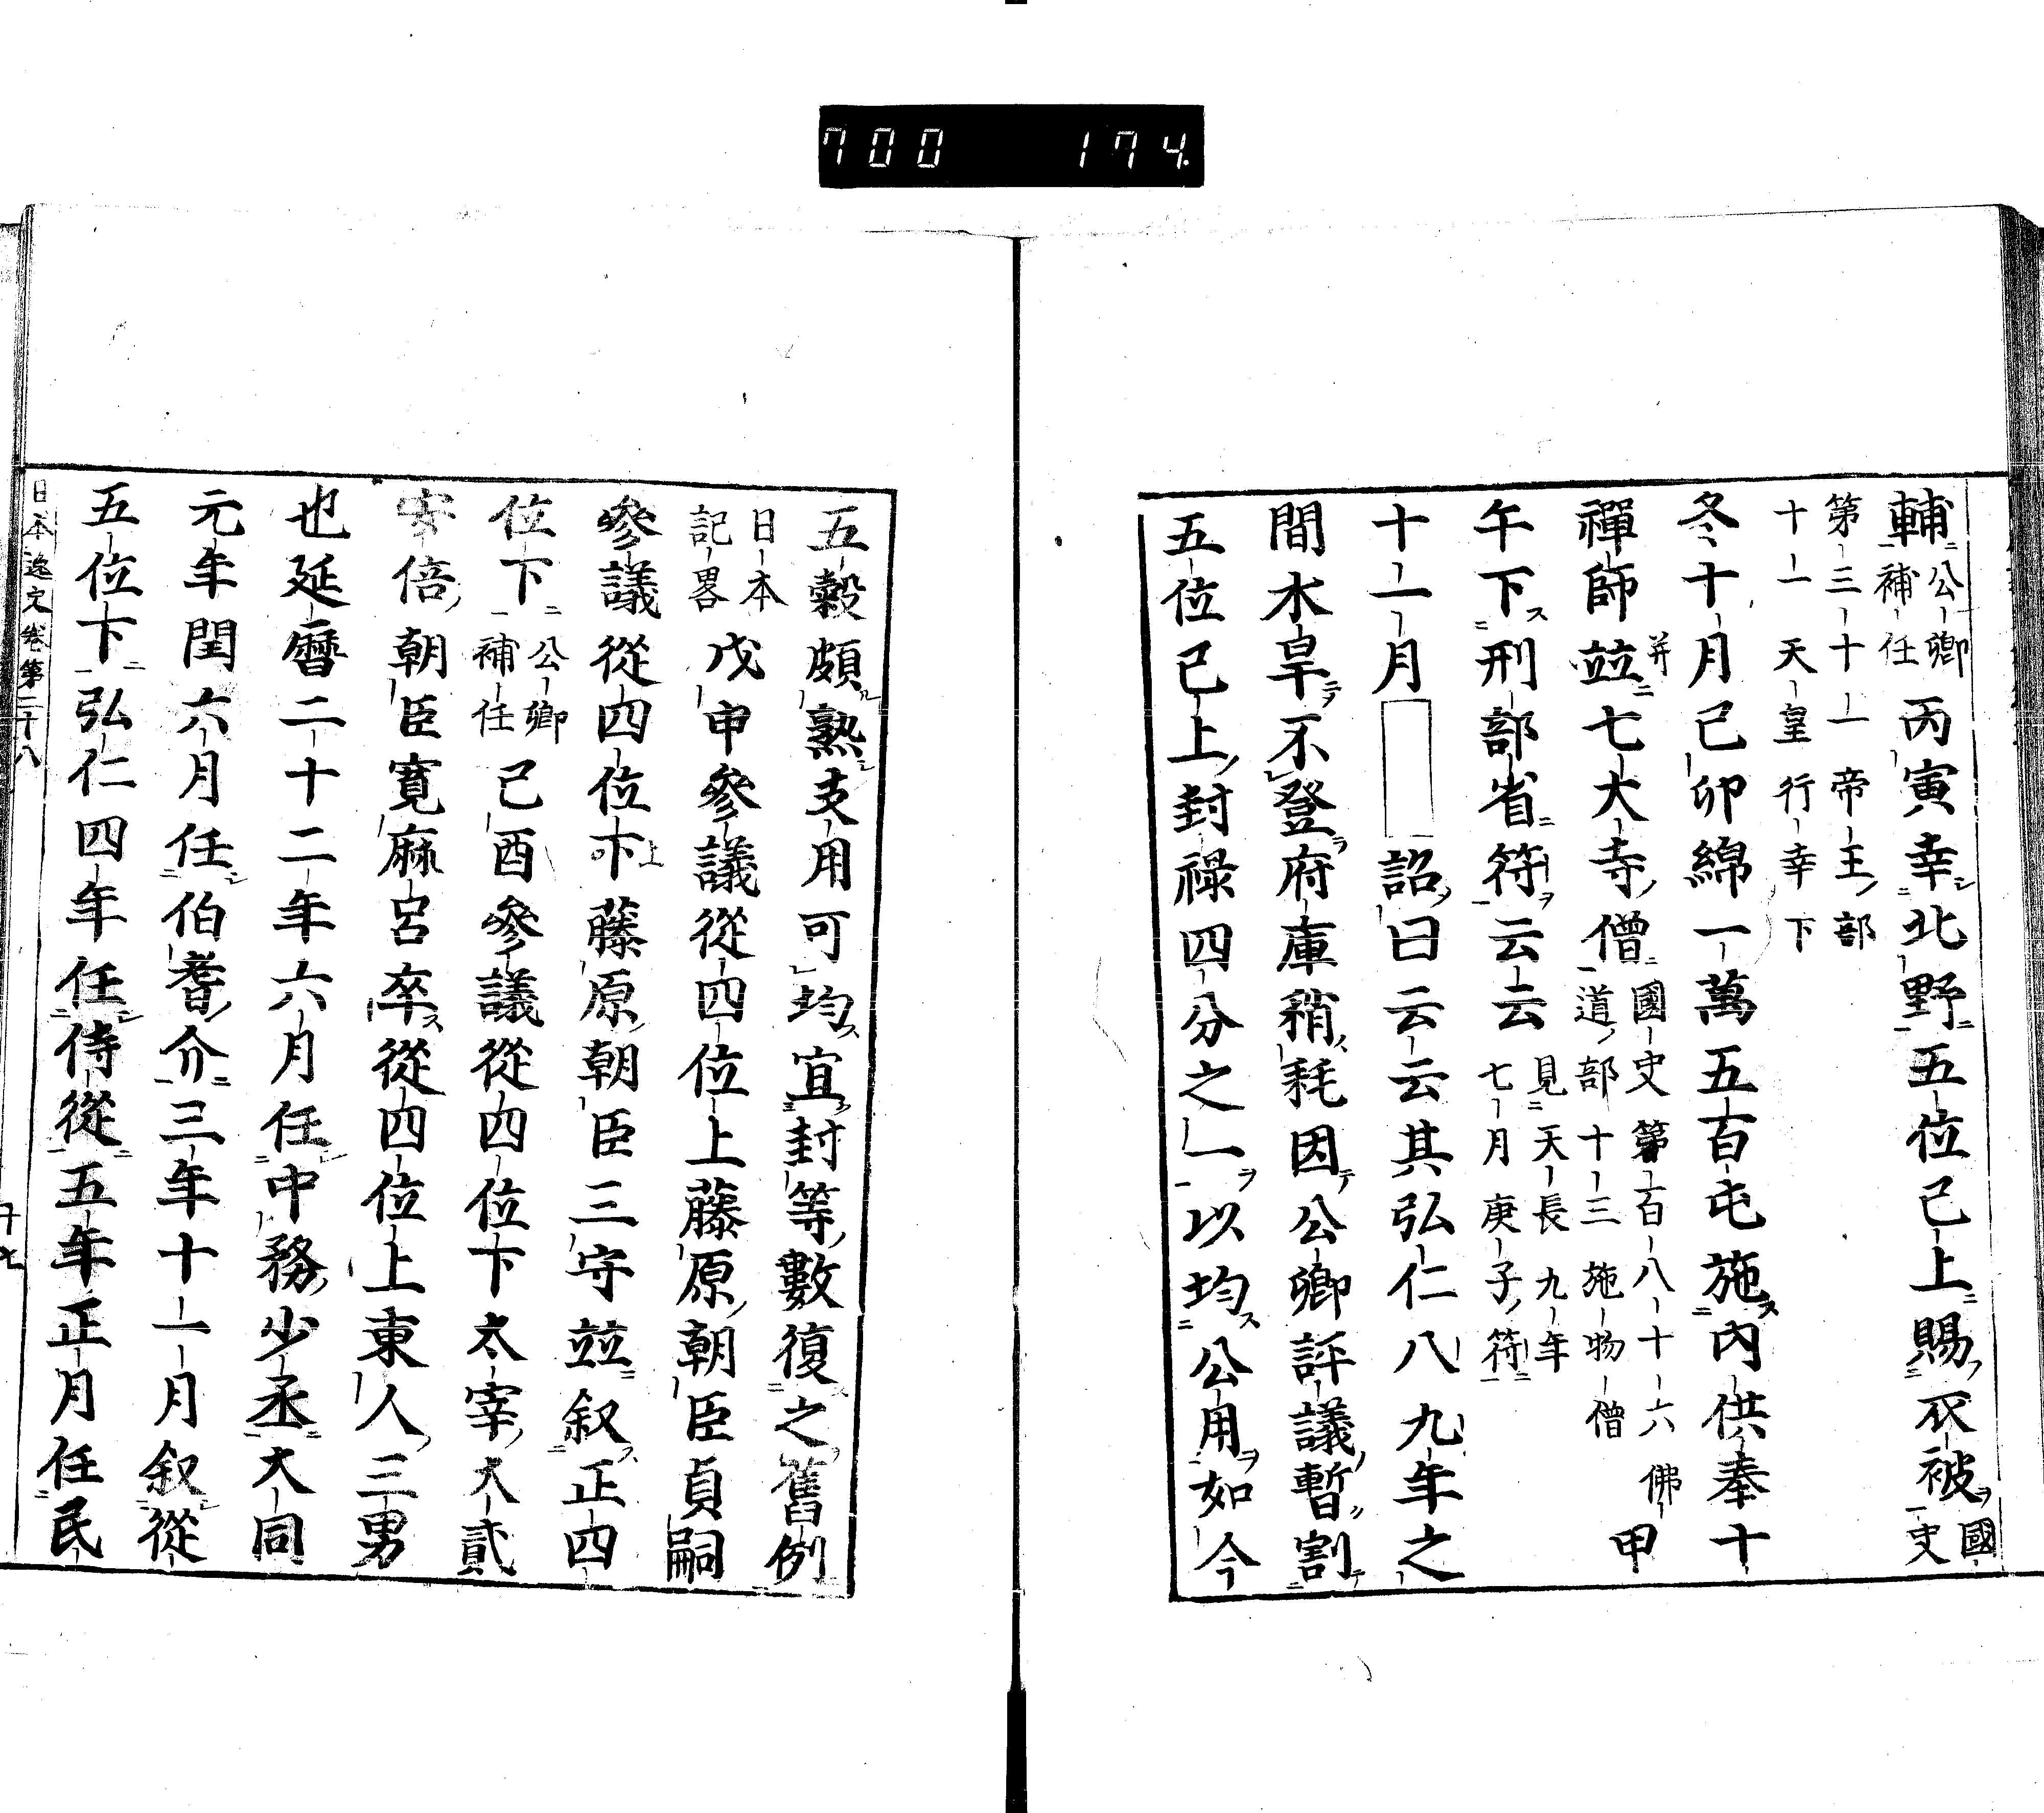 700 174
輔公卿補任丙寅幸北野五位已上賜衣被國史
第三十一帝王部十一天皇行幸下
冬十月己卯綿一萬五百屯施內供奉十
禪師竝七大寺僧國史第百八十六佛道部十三施物僧甲
午下刑部省符云云見天長九年七月庚子符
十一月詔曰云云其弘仁八九年之
間木旱不登府庫稍耗因公卿評議暫割
五位已上封祿四分之一以均公用如今
五穀頗熟支用可均宜封等數復之舊例
日本記畧戊申參議從四位上藤原朝臣貞嗣
參議從四位下上藤原朝臣三守竝叙正四
位下公卿補任己酉參議從四位下太宰大貳
安倍朝臣寬麻呂卒從四位上東人三男
也延曆二十二年六月任中務少丞大同
元年閏六月任伯耆介三年十一月叙從
五位下弘仁四年任侍從五年正月任民
日本逸史卷第二十八
十七